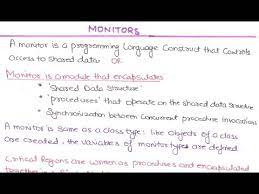 MONITORS
A monitor is a programming Language Construct that Controls
access to shared data OR
Monitor is a module that encapsulates
* 'Shared Data Structure'
* 'procedures' that operate on the shared data structure
* Synchronization between Concurrent procedure invocations
A monitor is same as a class type: like objects of a class
are created, the variables of monitor types are defined
Critical Regions are written as procedures and encapsulated